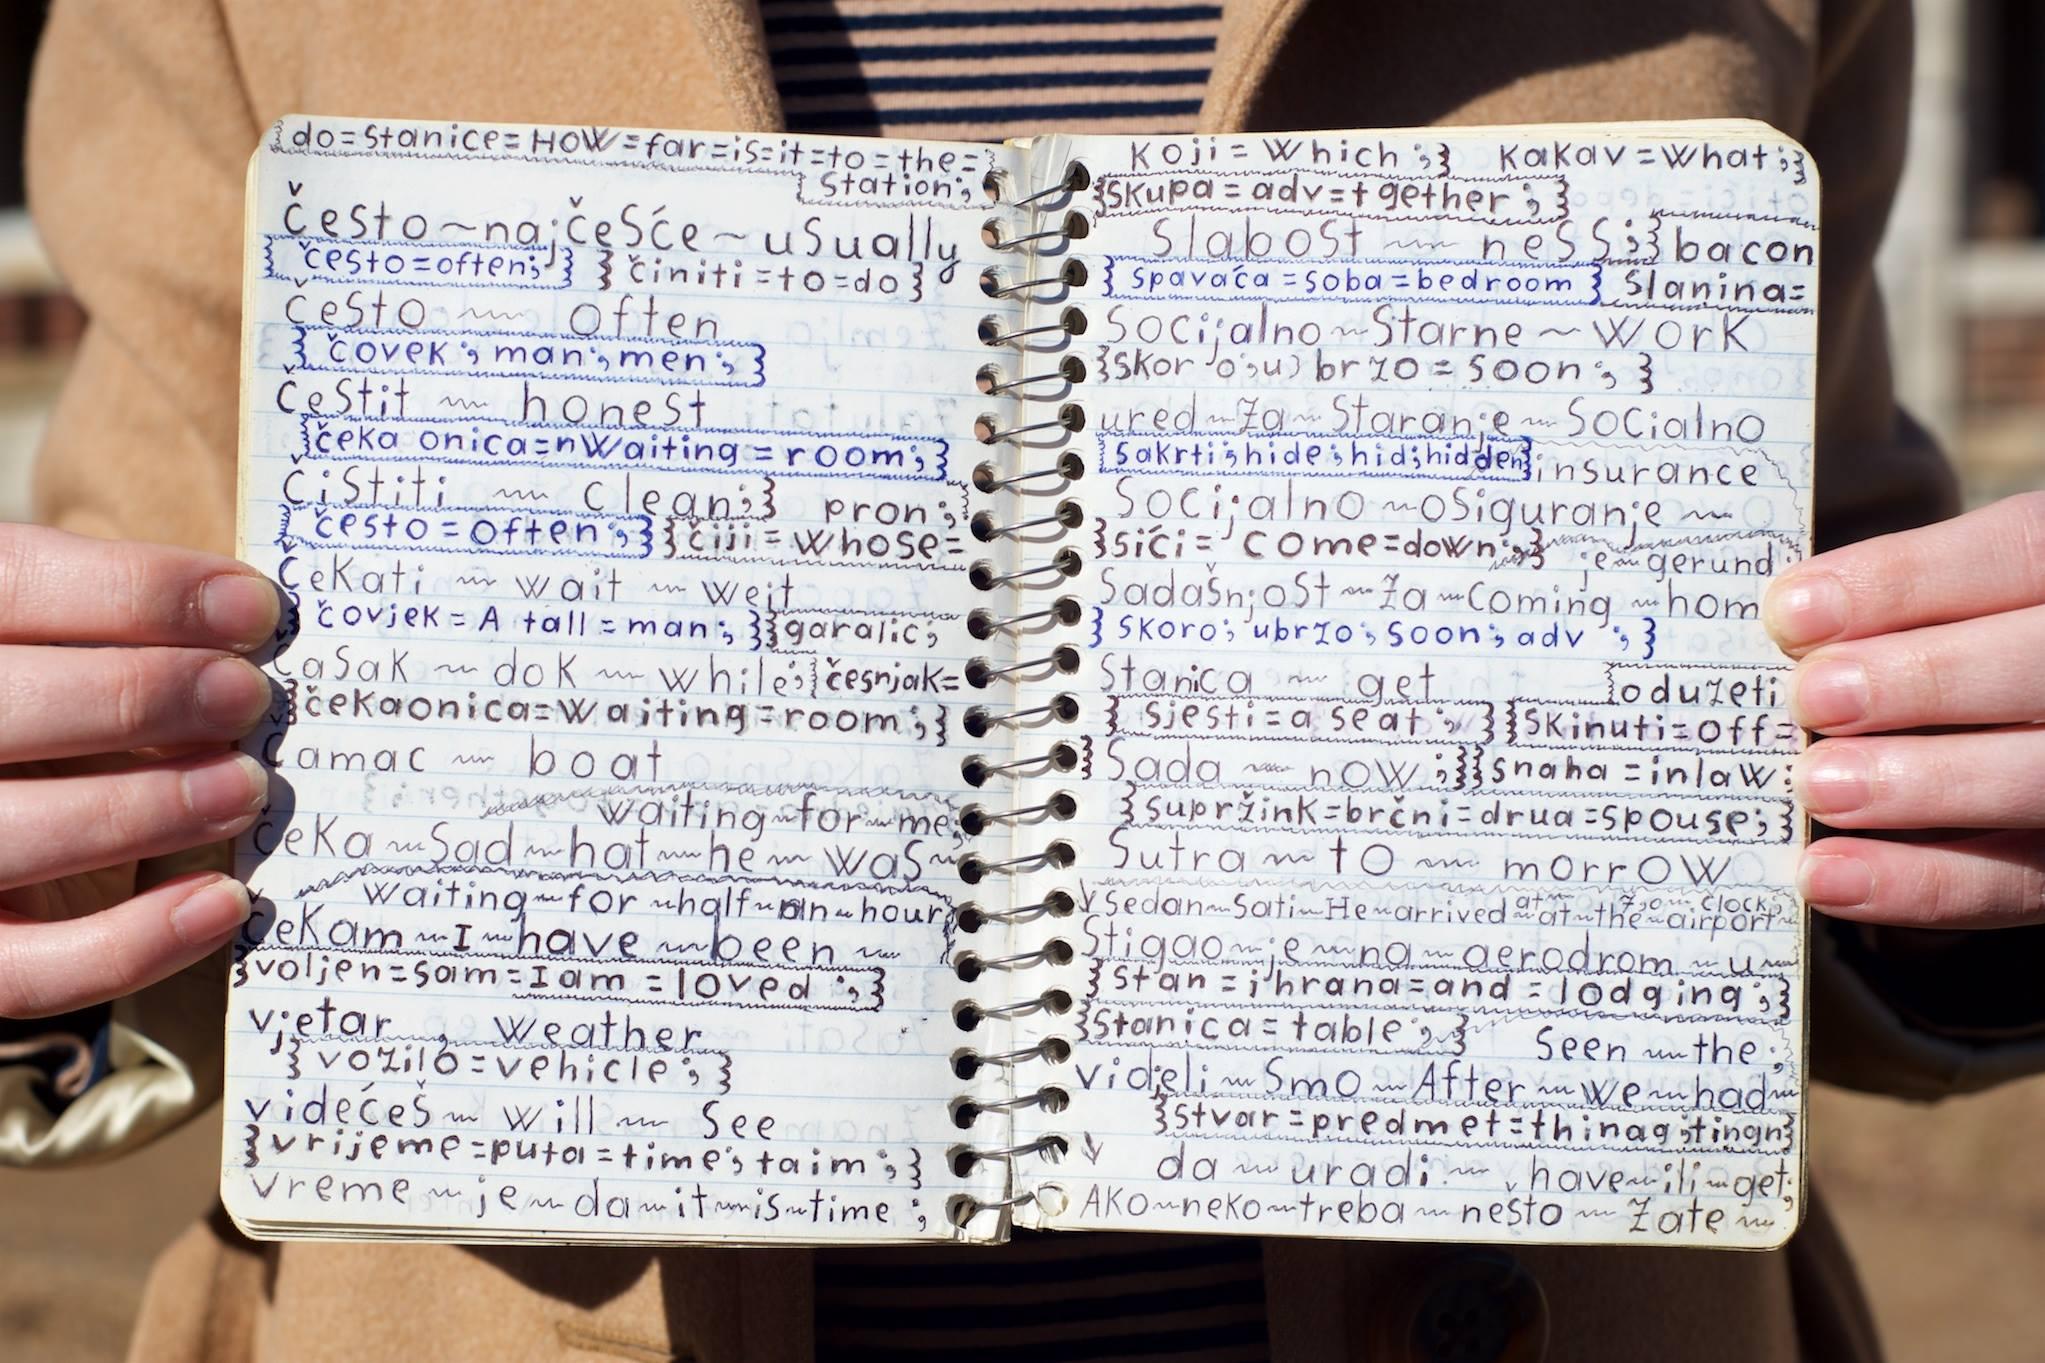 do=stanice=HOW=far=is=it=to=the=
station;
često~najčešće~usually
često=often; činiti=to=do
često ~ often
čovek; man; men;
čestit ~ honest
čeka onica=nwaiting=room;
čistiti ~ clean; pron;
često=often; čiji=whose=
čekati ~ wait ~ weit
čovjek=A tall=man; garalic;
časak ~ dok ~ while; češnjak=
čekaonica=waiting=room;
čamac ~ boat
waiting~for~me;
čeka~sad~hat~he~was~
waiting~for~half~an~hour
čekam~I~have~been~
voljen=sam=I am=loved;
vjetar weather
vozilo=vehicle;
videćeš~will~see
vrijeme=puta=time; taim;
vreme~je~da~it~is~time;
koji=which; kakav=what;
skupa=adv=t gether;
slabost ~ ness; bacon
spavaća=soba=bedroom slanina=
socijalno~starne~work
skor o;u) brzo=soon;
ured~za~staranje~socialno
sakrti; hide; hid; hidden insurance
socijalno~osiguranje~
sići= come=down; je~gerund
sadašnjost~za~coming~hom
skoro; ubrzo; soon; adv ;
stanica ~ get oduzeti
sjesti=a seat; skinuti=off=
sada ~ now; snaha=inlaw:
supržink=brčni=drua=spouse;
sutra ~ to ~ morrow
at~7;oo~clock;
sedan~sati~He~arrived~at~the~airport~
stigao~je~na~aerodrom~u~
stan=i hrana=and=lodging;
stanica=table; seen~the;
videli~smo~After~we~had~
stvar=predmet=thinag;tingn
da~uradi~have~ili~get;
AKo~neko~treba~nešto~zate~